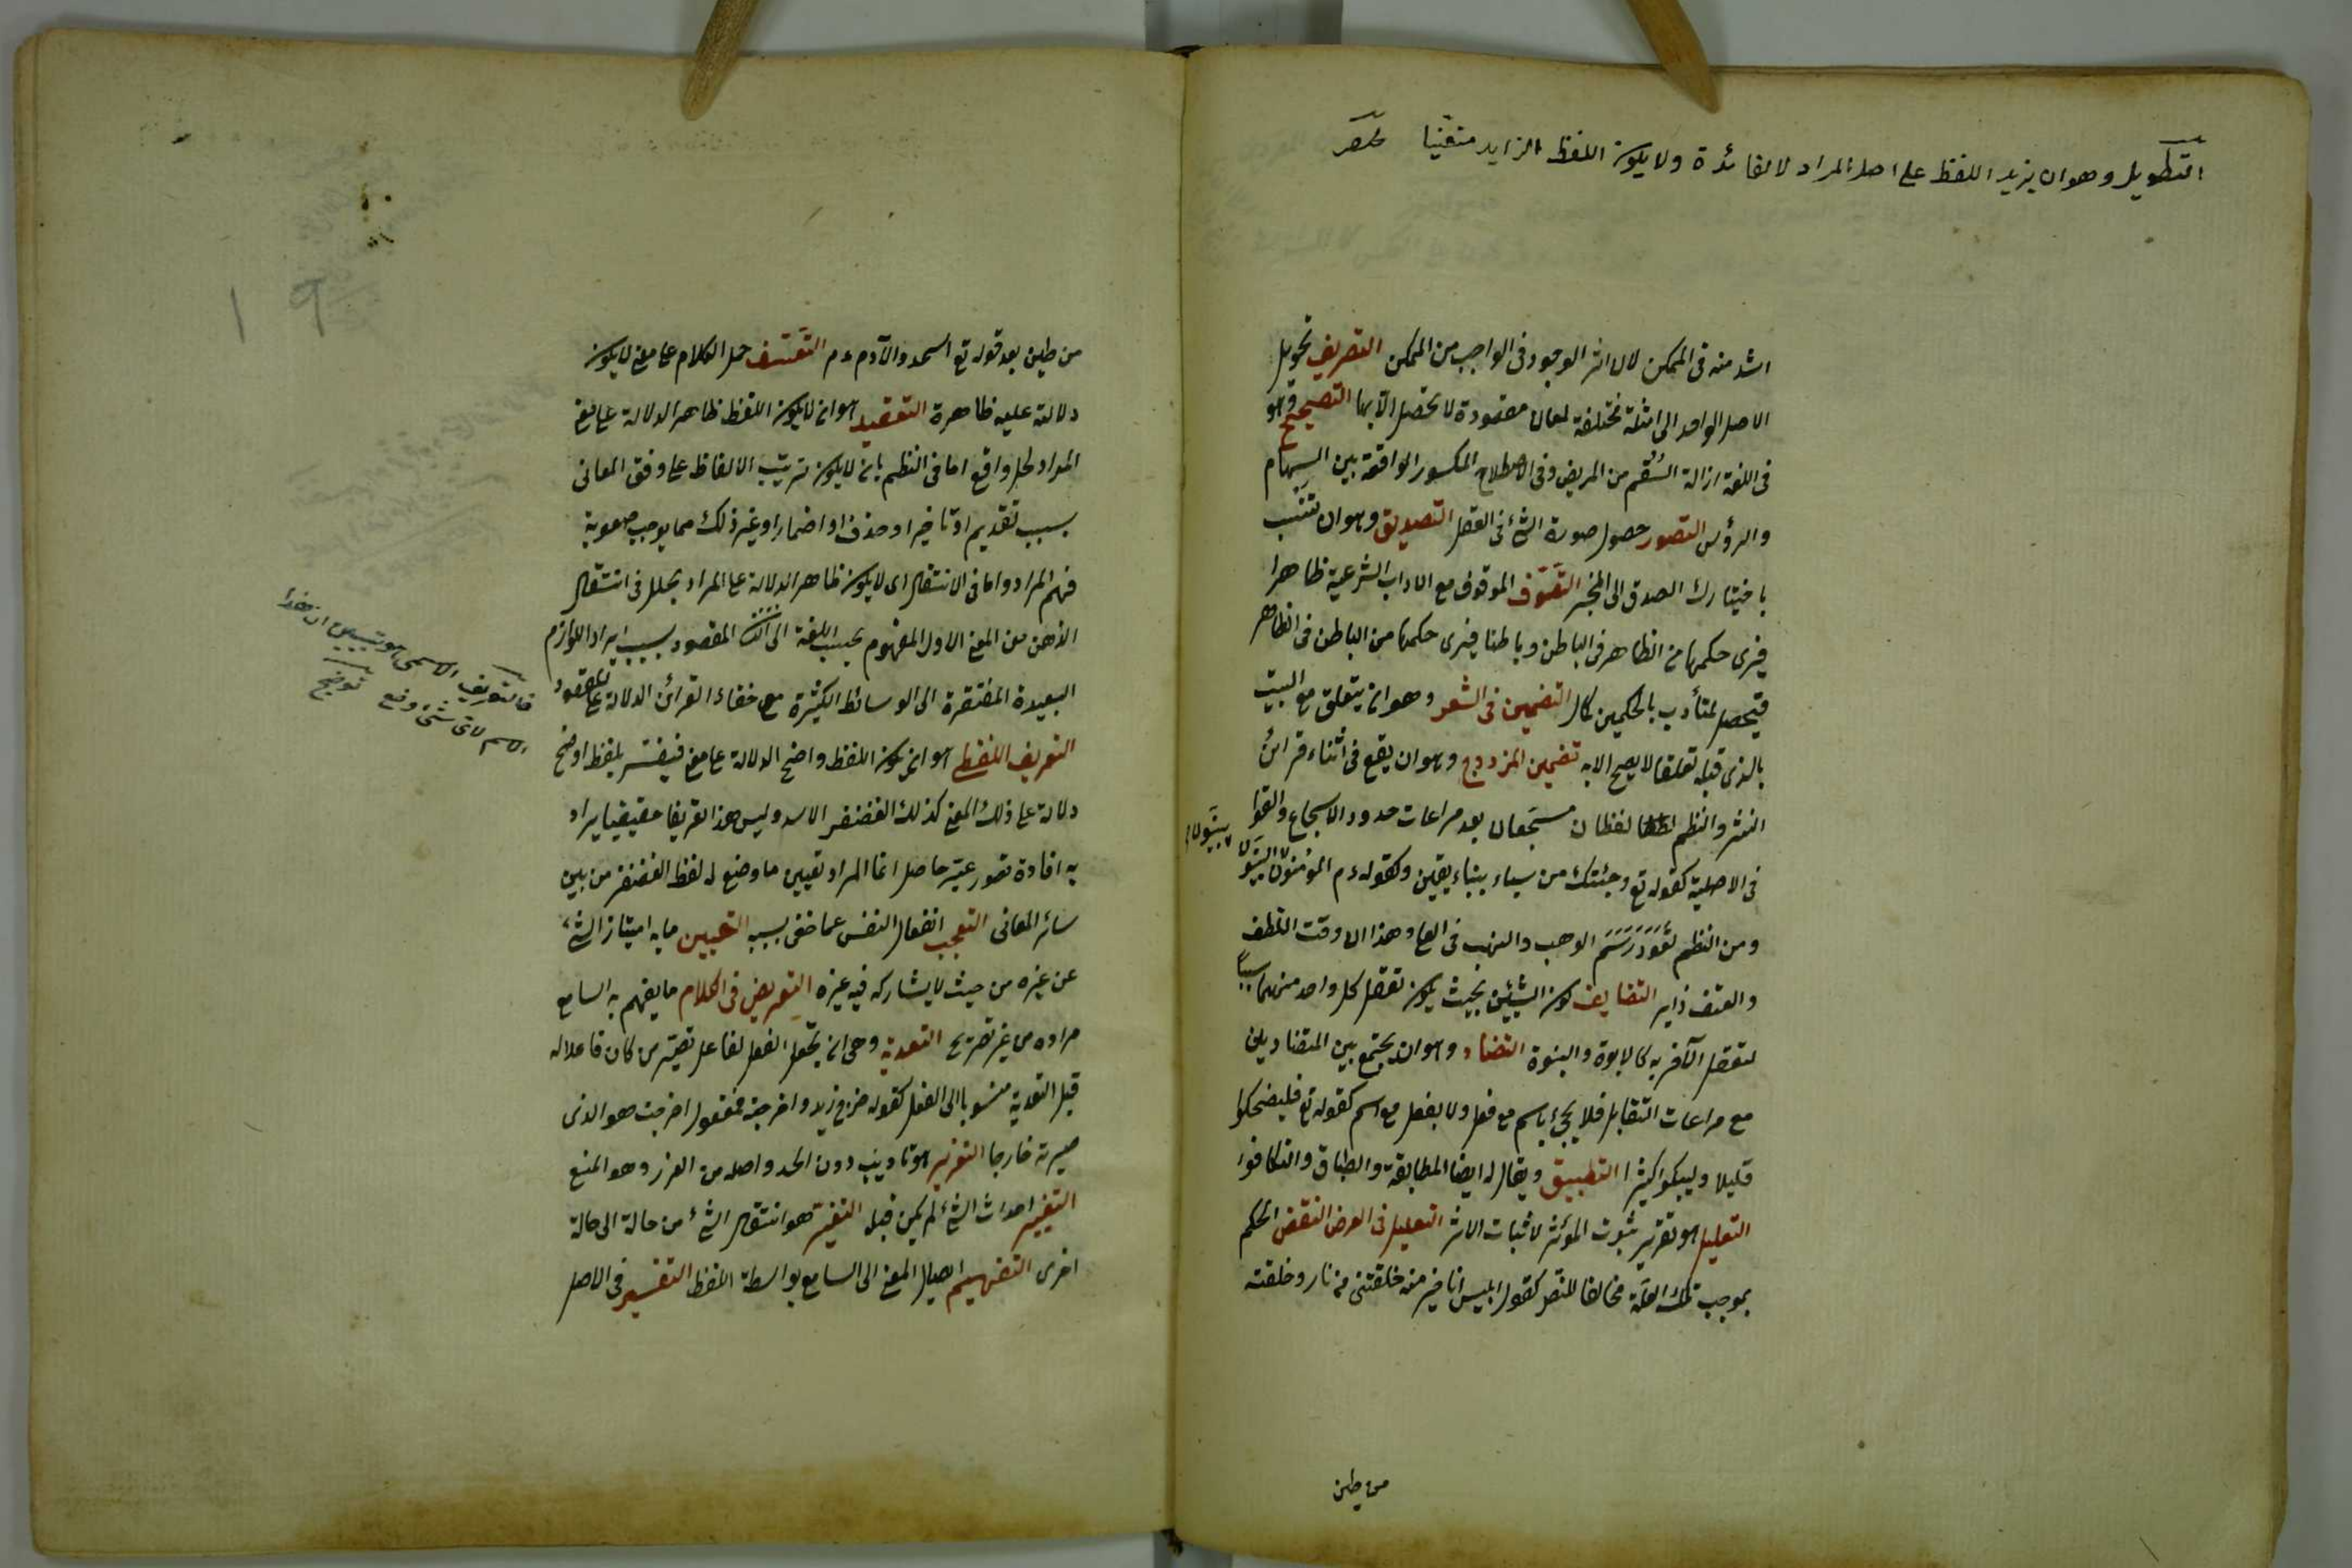 التطويل وهو ان يزيد اللفظ على اصل المراد لا لفائدة ولا يكون اللفظ الزايد متعينا مختصر
اشد منه فى الممكن لان اثر الوجود فى الواجب من الممكن التصريف تحويل
الاصل الواحد الى امثلة مختلفة لمعان مقصودة لا تحصل الا بها التصحيح وهو
فى اللغة ازالة السُقم من المريض وفى الاصطلاح المكسور الواقعة بين السهام
والرؤس التصور حصول صورة الشئ فى العقل التصديق وهو ان تنسب
باختيارك الصدق الى المخبر التصَوّف الموقوف مع الاداب الشرعية ظاهرا
فيرى حكمها من الظاهر فى الباطن وباطنا فيرى حكمها من الباطن فى الظاهر
فيحصل لمتأدب بالحكمين كمال التضمين فى الشعر وهو ان يتعلق مع البيت
بالذى قبله تعلقا لا يصح الا به تضمين المزدوج وهو ان يقع فى اثناء قرائن
النثر والنظم لفظان مسجعان بعد مراعات حدود الاسجاع والقوا
فى الاصلية كقوله تع وجئتك من سباء بنباء يقين وكقوله عم المؤمنون هينون
لينون
ومن النظم تعَوّدَ رَسَم الوهب والنهب فى العلا وهذا ان وقت اللطف
والعنف دأبه التضايف كون الشيئين بحيث يكون تعقل كل واحد منهما سببا
لتعقل الآخر به كالابوة والبنوة التضاد وهو ان يجتمع بين المتضادين
مع مراعات التقابل فلا يجئ باسم مع فعل ولا بفعل مع اسم كقوله تع فليضحكوا
قليلا وليبكوا كثيرا التطبيق ويقال له ايضا المطابقة والطباق والتكافوء
التعليل هو تقرير ثبوت المؤثر لاثبات الاثر التعليل فى العرض النقض الحكم
بموجب تلك العلة مخالفا للنص كقول ابليس انا خير منه خلقتنى من نار وخلقته
من طين
من طين بعد قوله تع اسجدوا لآدم عم التعسف حمل الكلام على معنى لا يكون
دلالته عليه ظاهرة التعقيد هو ان لا يكون اللفظ ظاهر الدلالة على معنى
المراد لخلل واقع اما فى النظم بان لا يكون ترتيب الالفاظ على وفق المعانى
بسبب تقديم او تاخير او حذف او اضمار او غير ذلك مما يوجب صعوبة
فهم المراد واما فى الانتقال اى لا يكون ظاهر الدلالة على المراد بخلل فى انتقال
الذهن من المعنى الاول المفهوم بحسب اللغة الى الثانى المقصود بسبب ايراد اللوازم
البعيدة المفتقرة الى الوسائط الكثيرة مع خفاء القرائن الدلالة على المقصود
التعريف اللفظى هو ان يكون اللفظ واضح الدلالة على معنى فيفسر بلفظ اوضح
دلالة على ذلك المعنى كذلك الغضنفر الاسد وليس هذا تعريفا حقيقيا يراد
به افادة تصور غير حاصل انما المراد تعيين ما وضع له لفظ الغضنفر من بين
سائر المعانى التعجب انفعال النفس عما خفى بسببه التعيين مابه امتياز الشئ
عن غيره من حيث لا يشاركه فيه غيره التعريض فى الكلام ما يفهم به السامع
مراده من غير تصريح التعدية وهى ان تجعل الفعل لفاعل تصير من كان فاعلا له
قبل التعدية منسوبا الى الفعل كقوله خرج زيد واخرجته فمفعول اخرجت هو الذى
صيرته خارجا التعزير هو تاديب دون الحد واصله من العزر وهو المنع
التغيير احداث الشئ لم يكن قبله التغير هو انتقال الشئ من حالة الى حالة
اخرى التفهيم ايصال المعنى الى السامع بواسطة اللفظ التفسير فى الاصل
فالتعريف الاسمى هو تبيين ان هذا
الاسم لاى شئ وضع توضيح